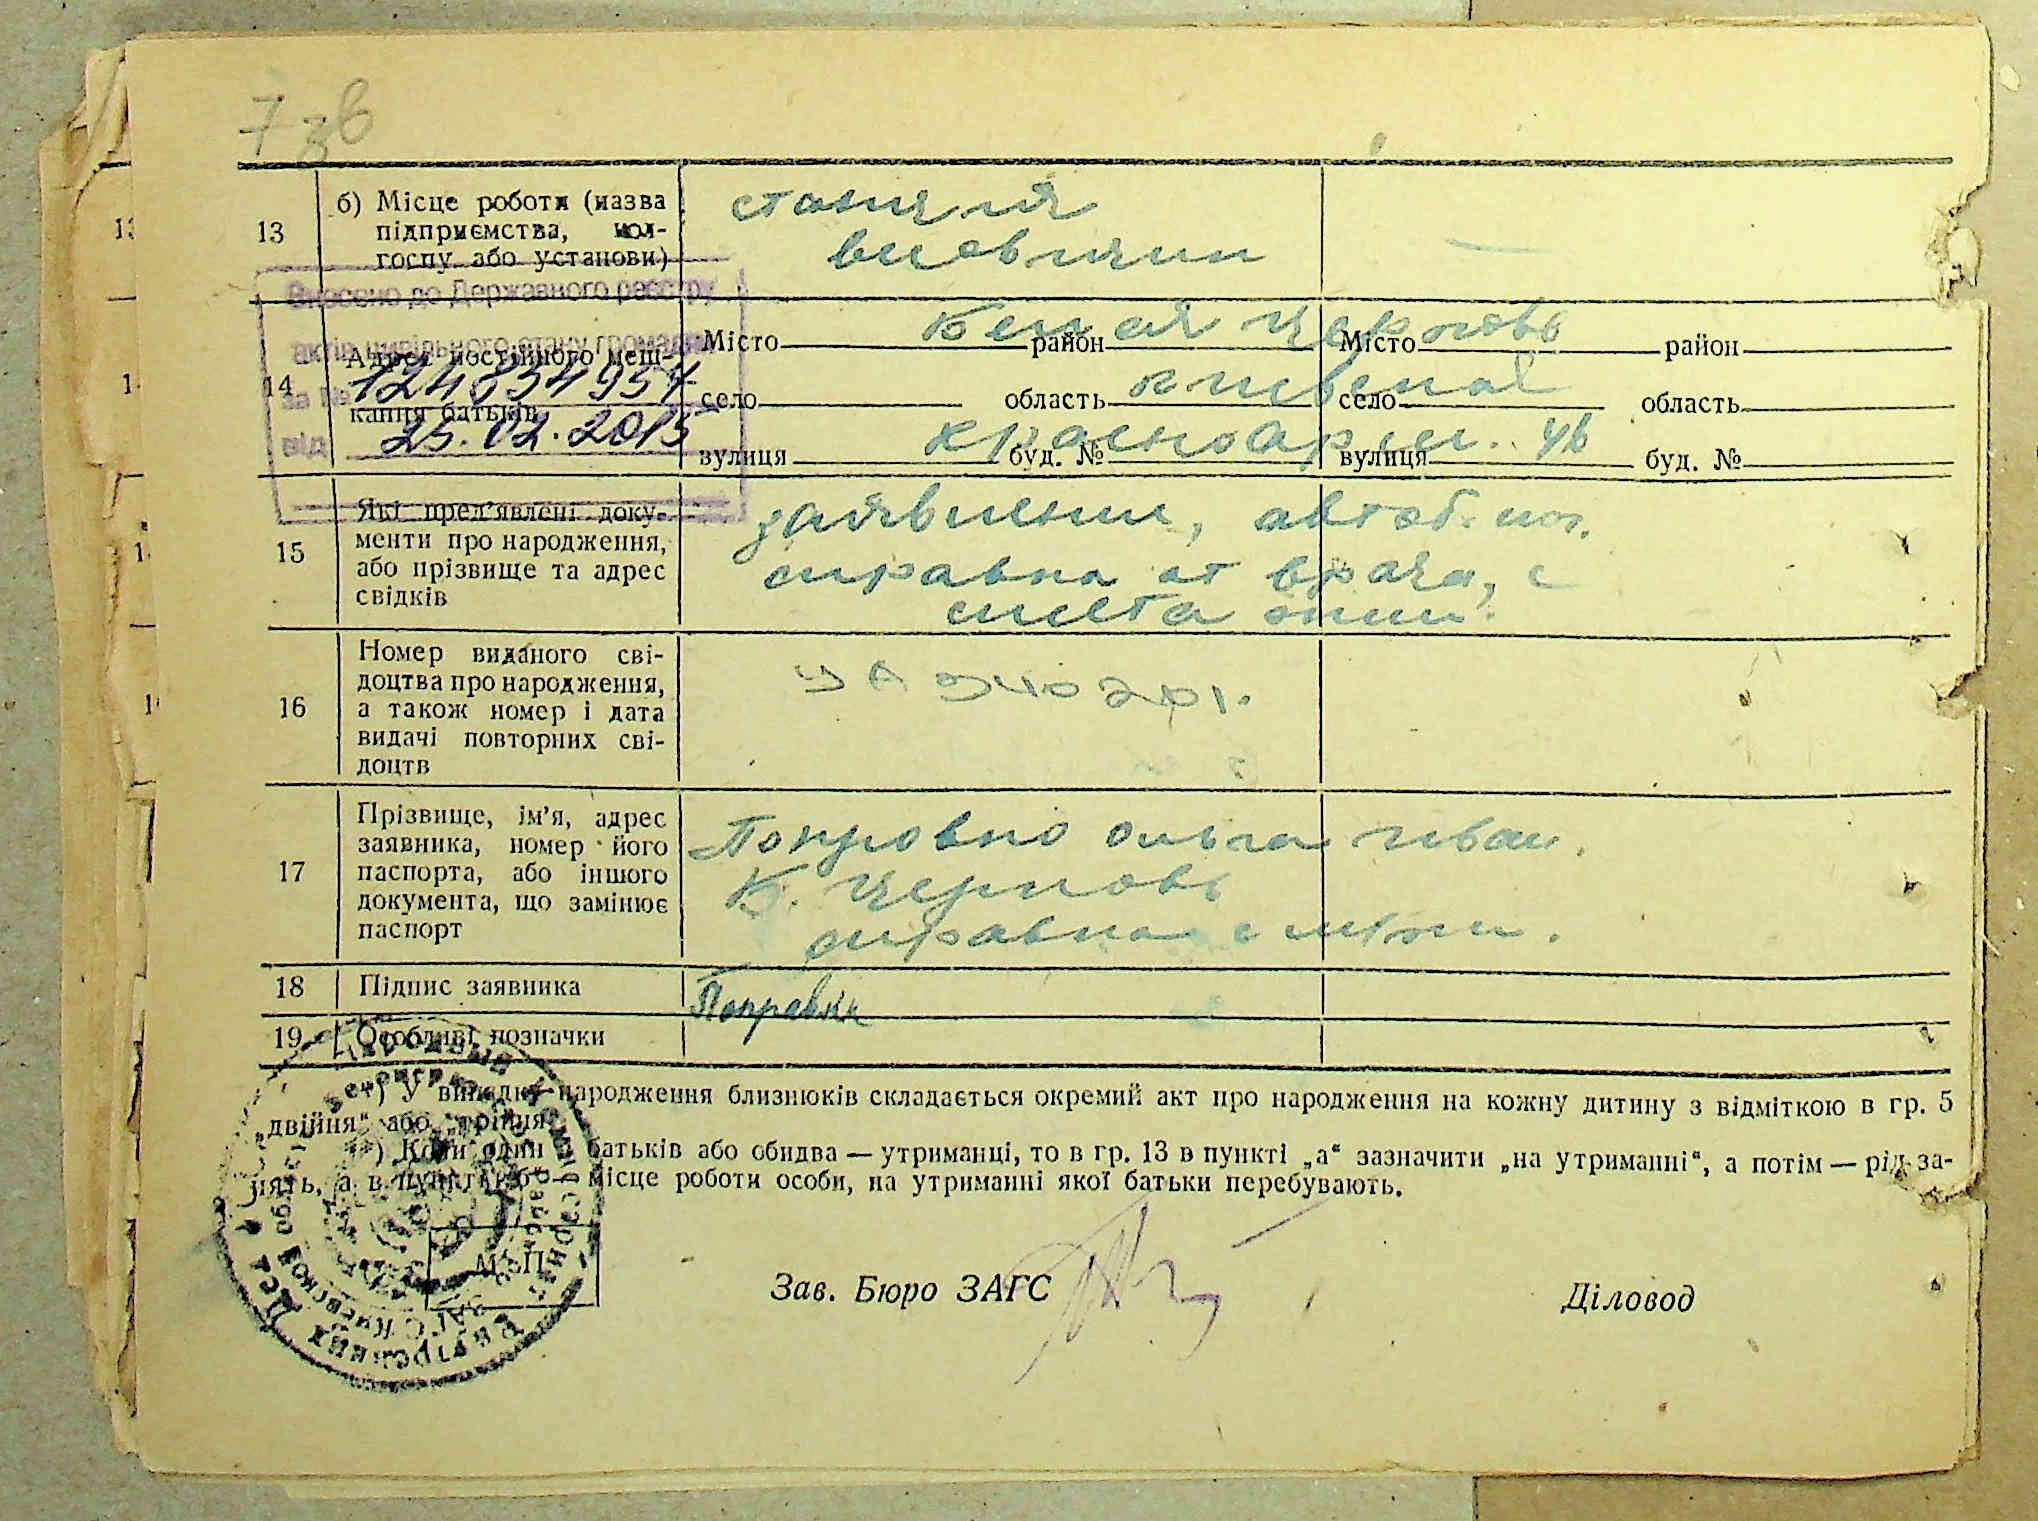 7зв
13
б) Місце роботи (назва
підприємства, кол-
госпу або установи)
станция
Внесено до Державного реєстру
актів цивільного стану громадян
за №
124834954
від
25.02.2015
14
Адрес постійного меш-
кання батьків
Місто район Місто район
Белая Церковь
село область село область
Киевской
вулиця буд. № вулиця буд. №
Красноарм. 46
15
Які пред'явлені доку-
менти про народження,
або прізвище та адрес
свідків
заявление,
справка от врача, с
места жит.
16
Номер виданого сві-
доцтва про народження,
а також номер і дата
видачі повторних сві-
доцтв
17
Прізвище, ім'я, адрес
заявника, номер його
паспорта, або іншого
документа, що замінює
паспорт
Ольга Иван.
Б. Церковь
справка с м/жит.
18
Підпис заявника
19
Особливі позначки
*) У випадку народження близнюків складається окремий акт про народження на кожну дитину з відміткою в гр. 5
„двійня“ або „трійня“.
**) Коли один з батьків або обидва — утриманці, то в гр. 13 в пункті „а“ зазначити „на утриманні“, а потім — рід за-
нять, а в пункті „б“ — місце роботи особи, на утриманні якої батьки перебувають.
М. П.
Зав. Бюро ЗАГС
Діловод
Народный Комиссариат Внутренних Дел
ЗАГС Киевской области